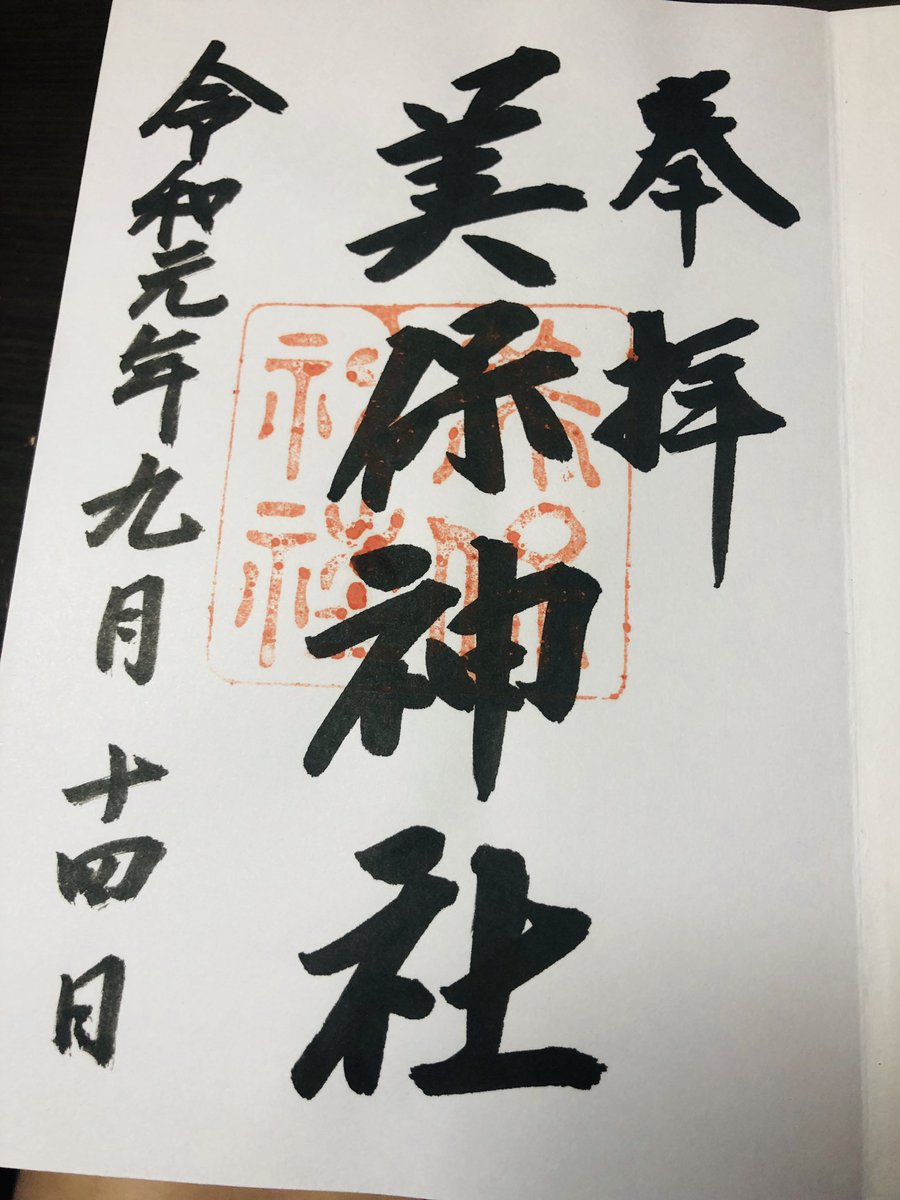 奉拝
美保神社
令和元年九月十四日